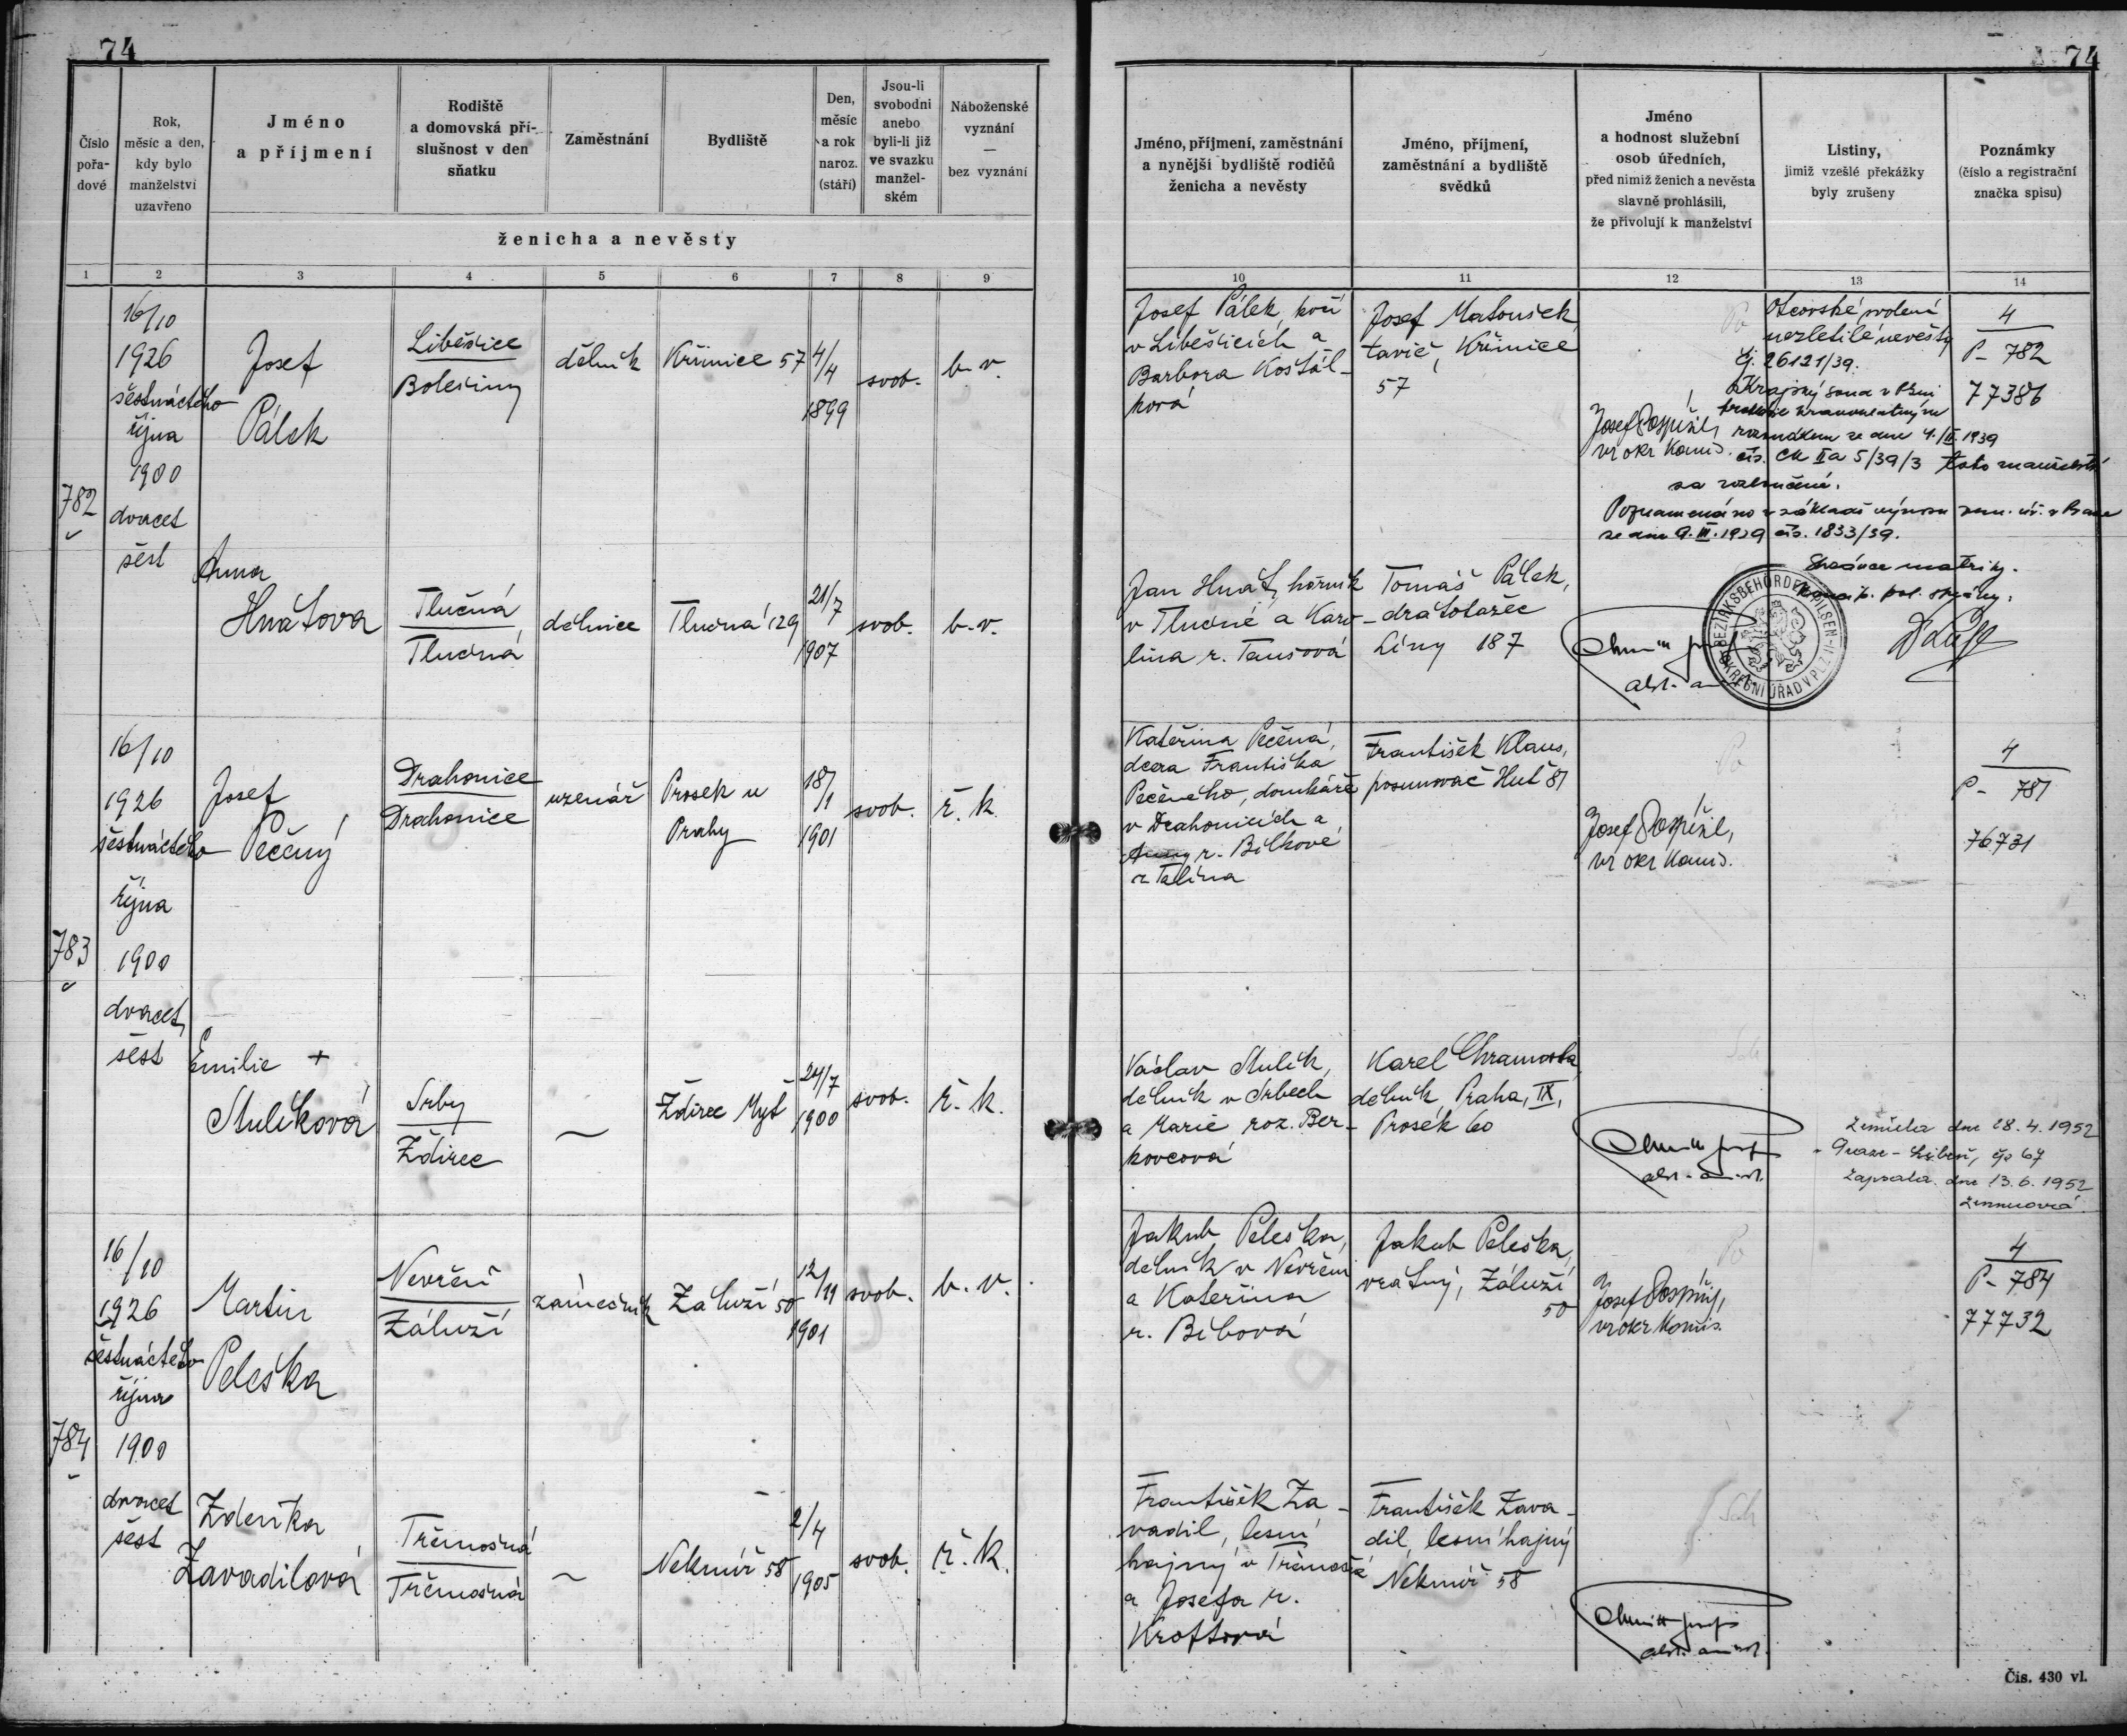 74
Číslo pořa- dové
Rok, měsíc a den, kdy bylo manželství uzavřeno
Jméno a příjmení
Rodiště a domovská pří- slušnost v den sňatku
Zaměstnání
Bydliště
Den, měsíc a rok naroz. (stáří)
Jsou-li svobodni anebo byli-li již ve svazku manžel- ském
Náboženské vyznání — bez vyznání
ženicha a nevěsty
1 2 3 4 5 6 7 8 9
16/10
1926
šestnáctého
října
1900
dvacet
šest
782
Josef
Pálek
Liběšice
Bolešiny
dělník
Křimice 57
4/4
1899
svob.
b. v.
Anna
Hnátova
Tlučná
Tlučná
dělnice
Tlučná 129
21/7
1907
svob.
b. v.
16/10
1926
šestnáctého
října
1900
dvacet
šest
783
Josef
Pečený
Drahonice
Drahonice
uzenář
Prosek u
Prahy
18/1
1901
svob.
ř. k.
Emilie +
Stulíková
Srby
Ždírec
Ždírec Myť
24/7
1900
svob.
ř. k.
16/10
1926
šestnáctého
října
1900
dvacet
šest
784
Martin
Peleška
Nevřeň
Záluží
zámečník
Záluží 50
12/11
1901
svob.
b. v.
Zdeňka
Zavadilová
Třemošná
Třemošná
Nekmíř 58
2/4
1905
svob.
ř. k.
74
Jméno, příjmení, zaměstnání a nynější bydliště rodičů ženicha a nevěsty
Jméno, příjmení, zaměstnání a bydliště svědků
Jméno a hodnost služební osob úředních, před nimiž ženich a nevěsta slavně prohlásili, že přivolují k manželství
Listiny, jimiž vzešlé překážky byly zrušeny
Poznámky (číslo a registrační značka spisu)
10 11 12 13 14
Josef Pálek,
v Liběšicích a
Barbora Košťál-
ková
Josef Matoušek
tavič, Křimice
57
Josef Pospíšil,
vr okr komis.
Otcovské svolení
nezletilé nevěsty
čj. 26121/39.
Krajský soud v Plzni
rozsudkem ze dne 4./II. 1939
čís. Ck IIa 5/39/3 toto manželství
za rozloučené.
Poznamenáno v základě výnosu zem. úř. v Praze
ze dne 9. III. 1939 čís. 1833/39.
Správce matriky.
4
P- 782
77386
Jan Hnát, horník
v Tlučné a Karo-
lina r. Tausová
Tomáš Pálek,
dratotažec
Líny 187
BEZIRKSBEHÖRDE IN PILSEN-
OKRESNÍ ÚŘAD V PLZNI
Kateřina Pečená,
dcera Františka
Pečeného, domkáře
v Drahonicích a
Anny r. Bílkové
z Talína
František Klaus,
posunovač Huť 81
Josef Pospíšil,
vr okr komis.
4
P- 781
76731
Václav Stulík,
dělník v Srbech
a Marie roz. Ber-
kovcová
Karel Chramosta
dělník Praha, IX,
Prosek 60
Zemřela dne 28. 4. 1952
Praze - Libeň, čp 67
Zapsala dne 13. 6. 1952
Jakub Peleška,
dělník v Nevřeni
a Kateřina
r. Bíbová
Jakub Peleška,
vrátný, Záluží
50
Josef Pospíšil,
vr okr komis.
4
P- 784
77732
František Za-
vadil, lesní
hajný v Třemošné
a Josefa r.
Kroftová
František Zava-
dil, lesní hajný
Nekmíř 58
Čís. 430 vl.